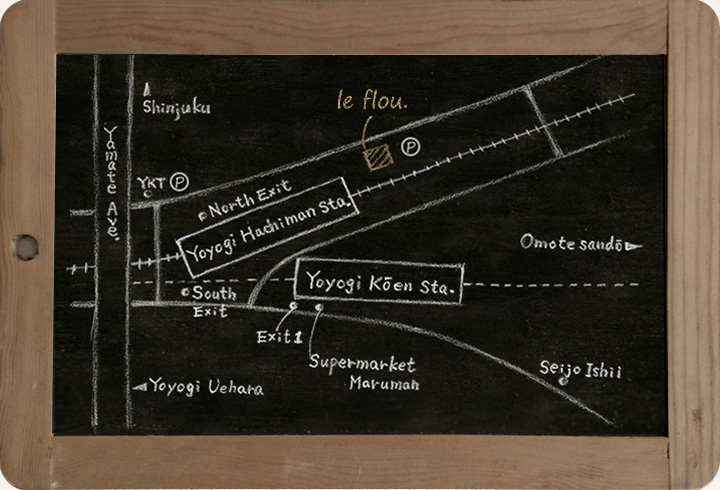 le flou.
Shinjuku
Yamate Ave.
YKT P
P
North Exit
Yoyogi Hachiman Sta.
Omote sandō
Yoyogi Kōen Sta.
South
Exit
Exit 1
Supermarket
Maruman
Seijo Ishii
Yoyogi Uehara